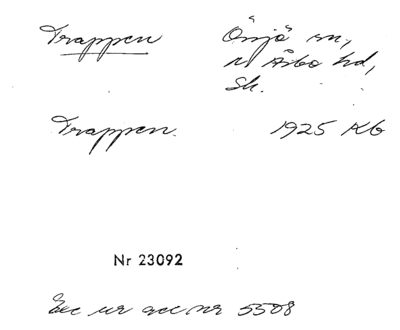 Trappen Össjö sn,
N Åsbo hd,
Sk.
Trappen. 1925 KG
Nr 23092
Exc ur acc nr 5508